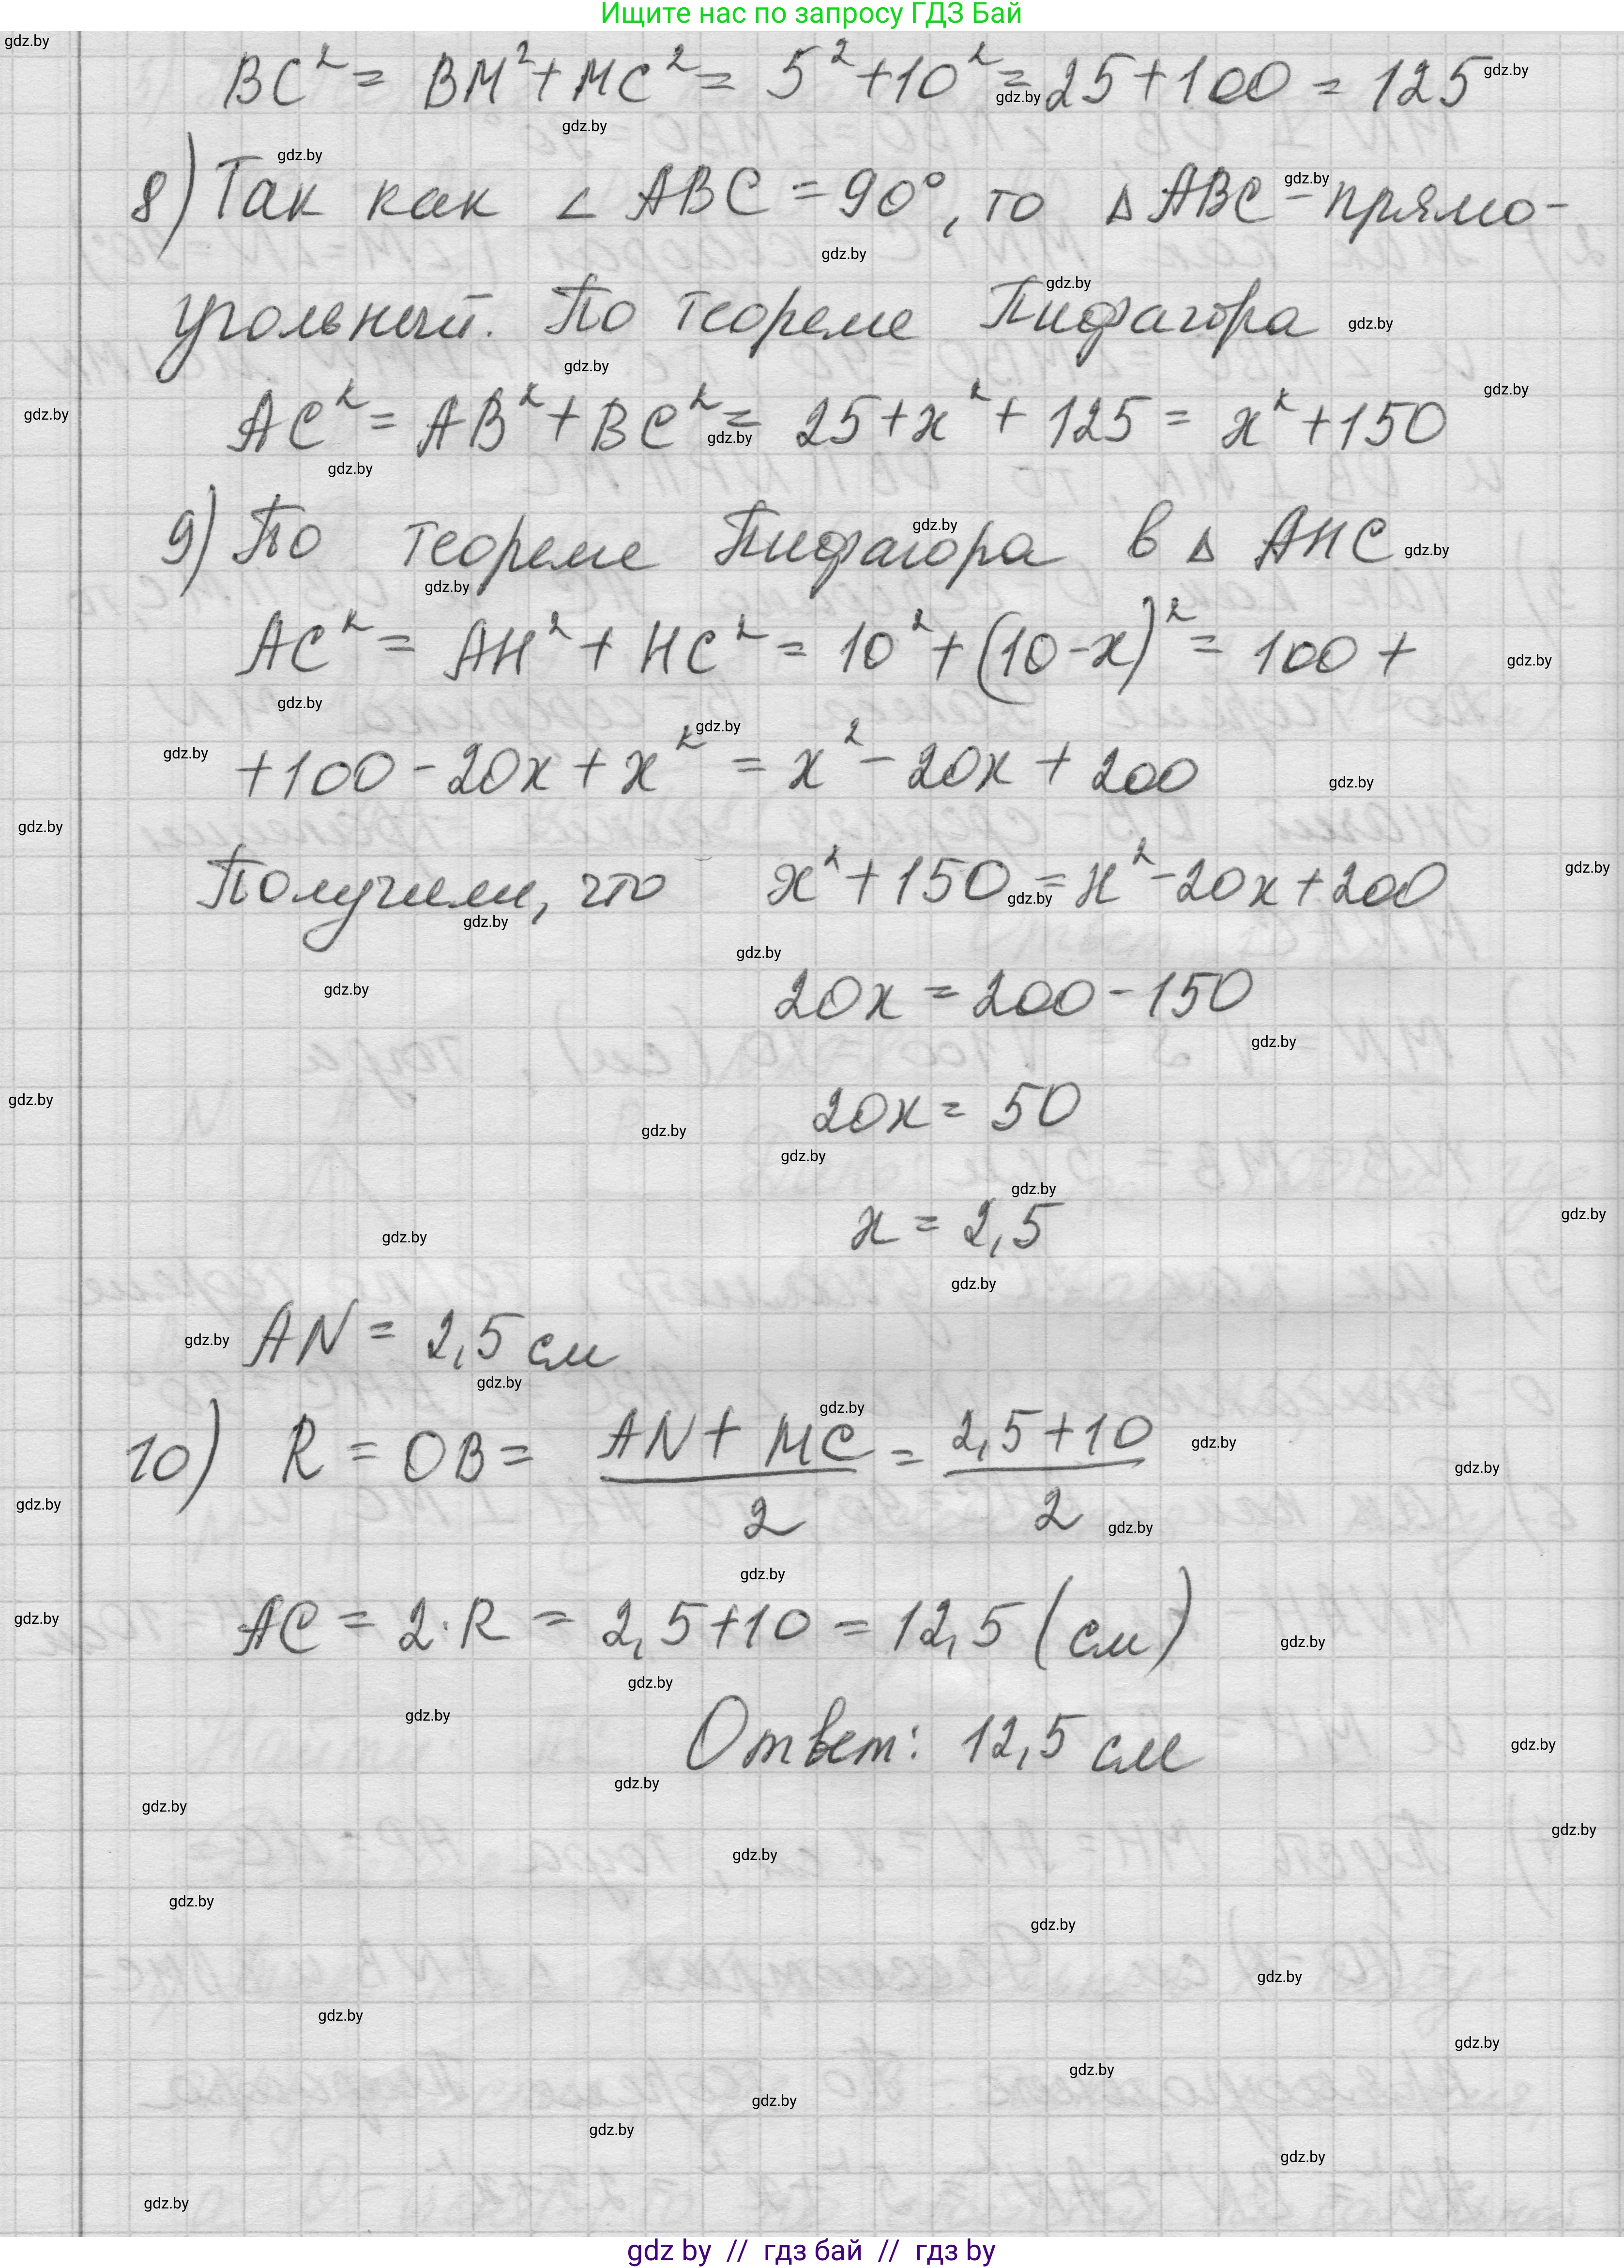 Ищите нас по запросу ГДЗ Бай
BC² = BM² + MC² = 5² + 10² = 25 + 100 = 125
8) Так как ∠ ABC = 90°, то Δ ABC - прямо-
угольный. По теореме Пифагора
AC² = AB² + BC² = 25 + x² + 125 = x² + 150
9) По теореме Пифагора в Δ AHC
AC² = AH² + HC² = 10² + (10 - x)² = 100 +
+ 100 - 20x + x² = x² - 20x + 200
Получили, что x² + 150 = x² - 20x + 200
20x = 200 - 150
20x = 50
x = 2,5
AN = 2,5 см
10) R = OB = (AN + MC)/2 = (2,5 + 10)/2
AC = 2·R = 2,5 + 10 = 12,5 (см)
Ответ: 12,5 см
gdz by // гдз бай // гдз by